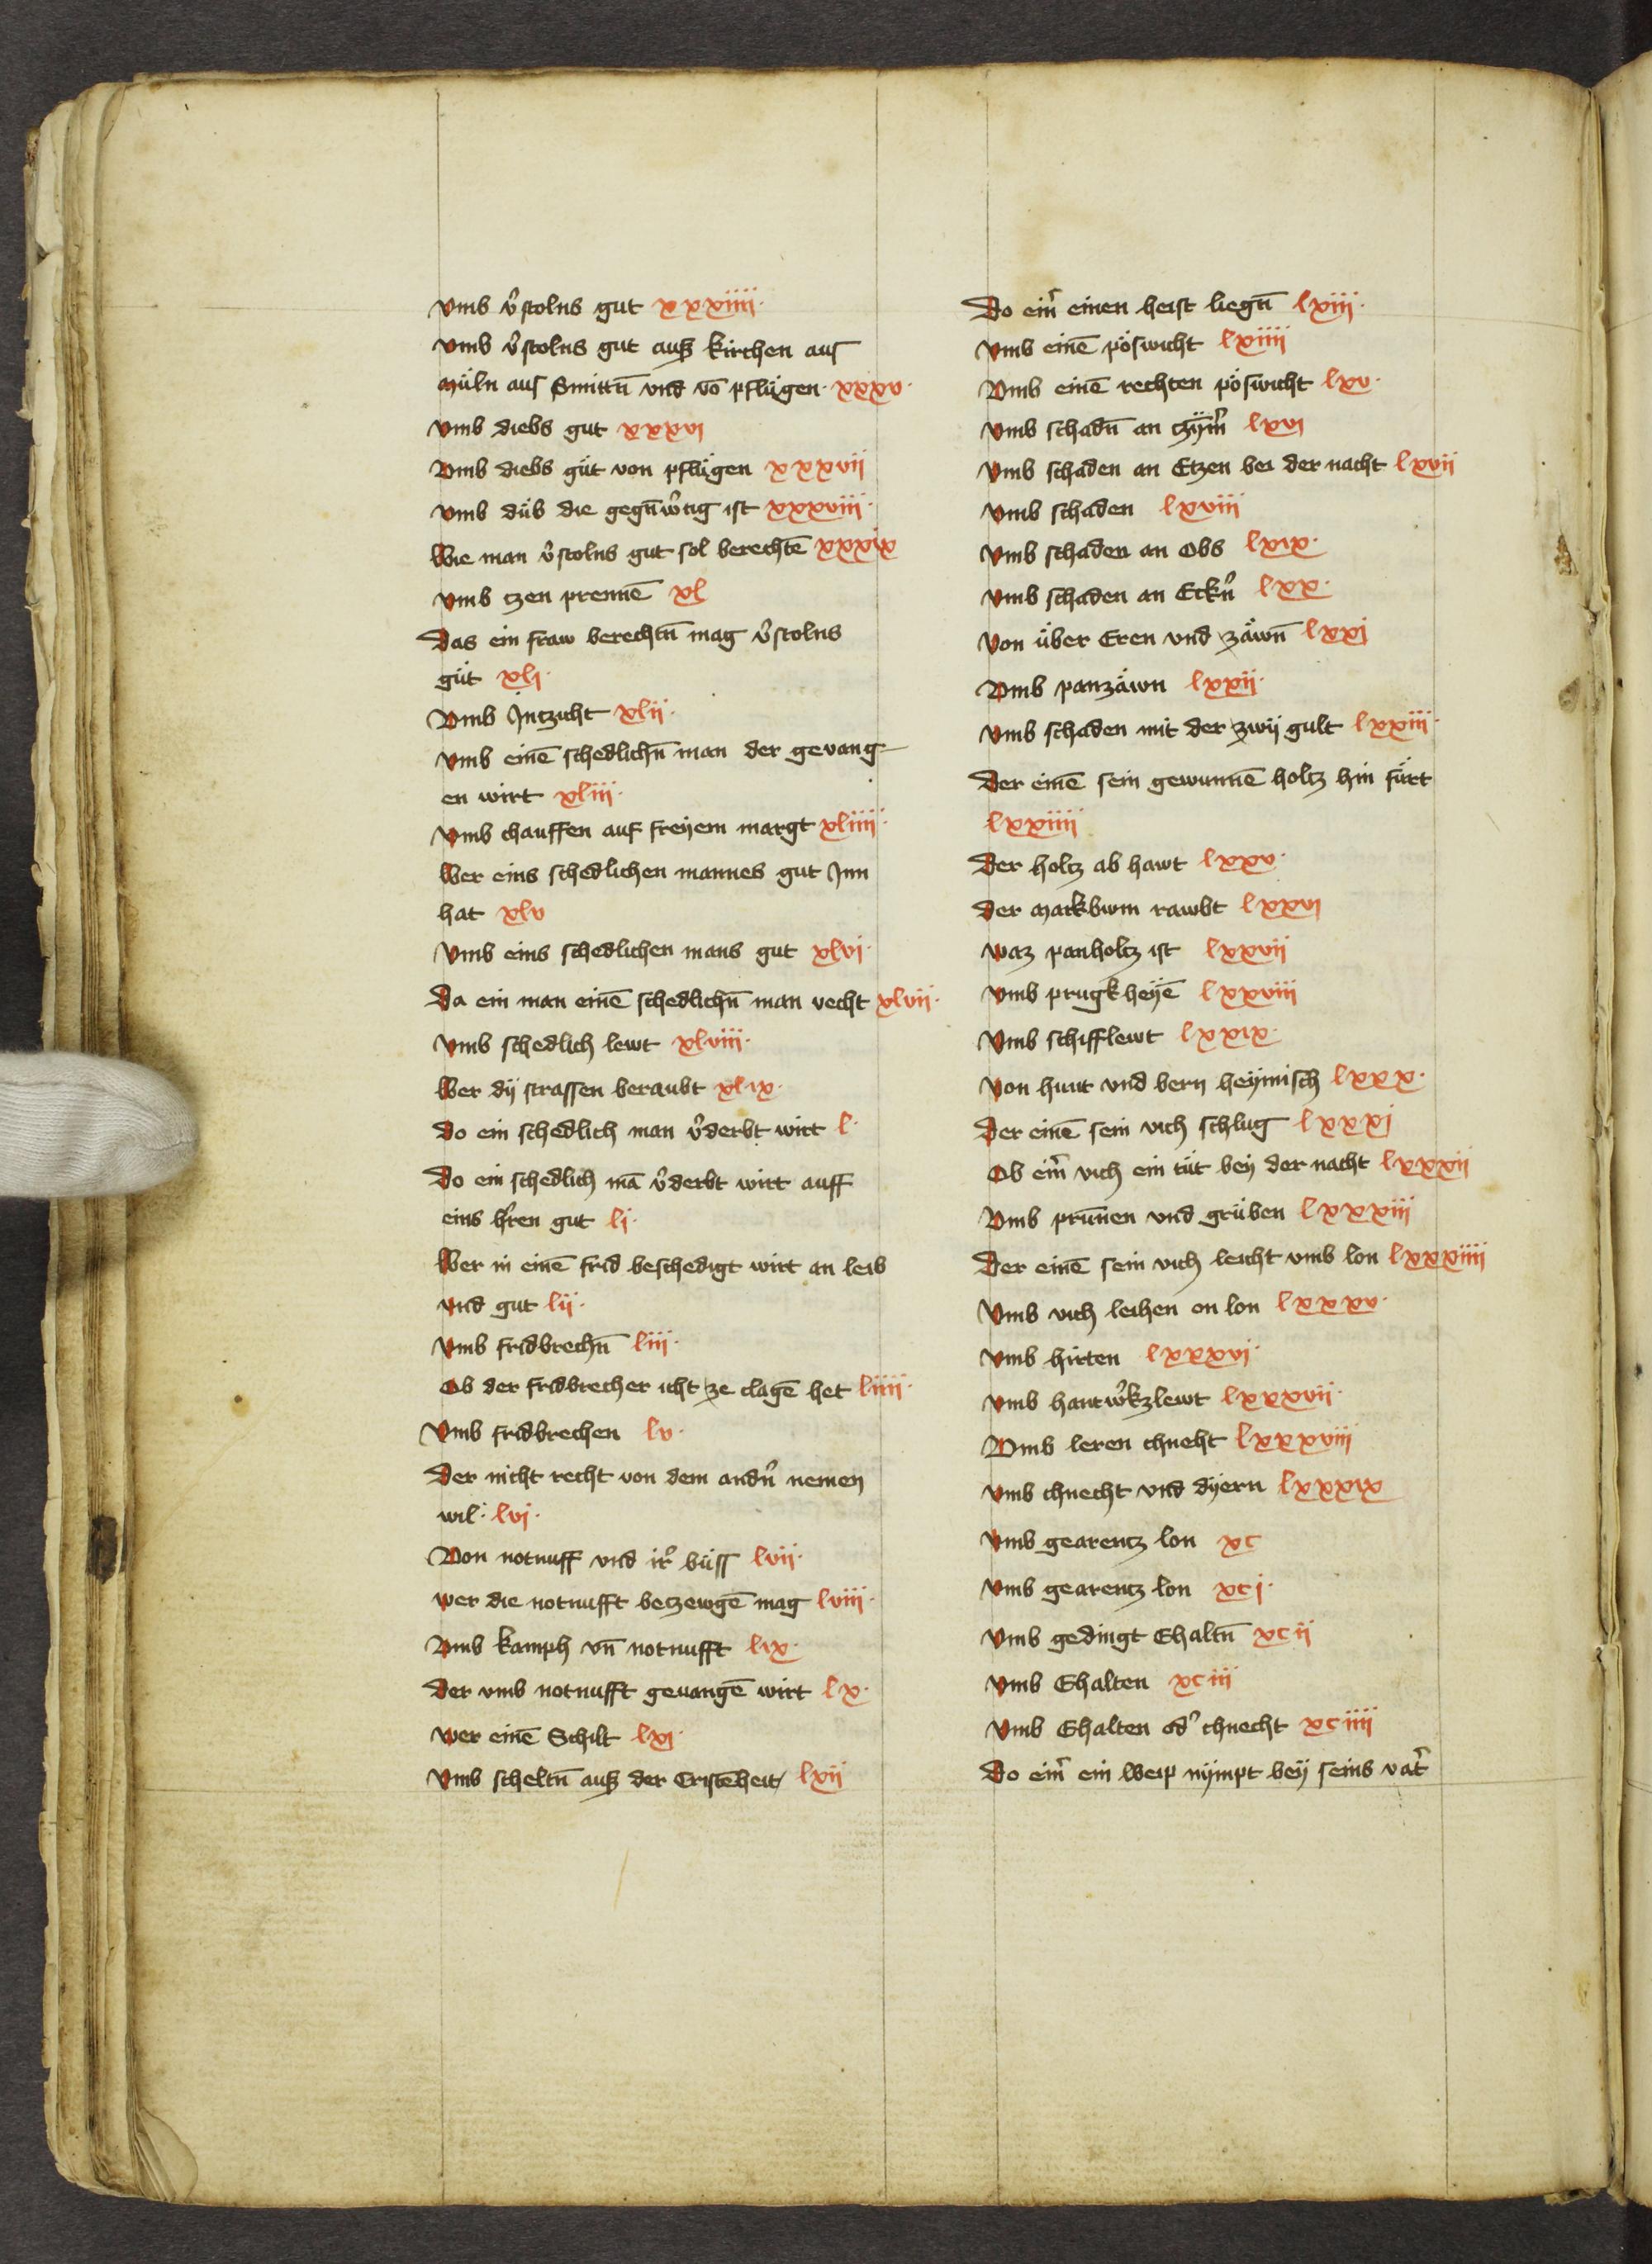 Vmb v̾stolns gut xxxiiii·
Vmb v̾stolns gut auß kirchen aus
müln aus Smittn̄ vnd vō pflügen· xxxv·
Vmb diebs gut xxxvi
Vmb diebs güt von pflügen xxxvii
Vmb düb die gegn̄w̾tig ist xxxviii·
Wie man v̾stolns gut sol berechtē xxxix
Vmb tzen prennē xl
Das ein fraw berechtn̄ mag v̾stolns
güt xli·
Vmb Intzicht xlii·
Vmb einē schedlichn̄ man der gevang
en wirt xliii·
Vmb chauffen auf freÿem margt xliiii·
Wer eins schedlichen mannes gut Inn
hat xlv
Vmb eins schedlichen mans gut xlvi·
Da ein man einē schedlichn̄ man vecht xlvii·
Vmb schedlich lewt xlviii·
Wer dÿ strassen beraubt xlix·
Do ein schedlich man v̾derbt wirt l·
Do ein schedlich mā v̾derbt wirt auff
eins h̾ren gut li·
Wer in einē frid beschedigt wirt an leib
vnd gut lii·
Vmb fridbrechn̄ liii·
Ob der fridbrecher icht ze clagē het liiii·
Vmb fridbrechen lv·
Der nicht recht von dem andn̾ nemen
wil· lvi·
Von notnuff vnd ir̾ büss lvii·
wer die notnufft betzewgē mag lviii·
Vmb kamph vn̄ notnufft lix·
Der vmb notnufft gevangē wirt lx·
Wer einē Schilt lxi·
Vmb scheltn̄ auß der Cristēheit lxii
Do eim̾ einen heist liegn̄ lxiii·
Vmb einē pöswicht lxiiii
Vmb einē rechten pöswicht lxv·
Vmb schadn̄ an tzÿm̾ lxvi
Vmb schaden an Etzen bei der nacht lxvii
Vmb schaden lxviii
Vmb schaden an Obs lxix·
Vmb schaden an Eckn̾ lxx·
Von über Eren vnd zäwn̄ lxxi
Vmb panzäwn lxxii·
Vmb schaden mit der zwÿ gult lxxiii·
Der einē sein gewunnē holtz hin fürt
lxxiiii
Der holtz ab hawt lxxv·
Der markbwm rawbt lxxvi
Waz panholtz ist lxxvii
Vmb prugk heÿē lxxviii
Vmb schifflewt lxxix·
Von hunt vnd bern heÿmisch lxxx·
Der einē sein vich schlug lxxxi
Ob eim̾ vich ein tüt beÿ der nacht lxxxii
Vmb prun̄en vnd grüben lxxxiii
Der einē sein vich leicht vmb lon lxxxiiii
Vmb vich leihen on lon lxxxv·
Vmb hirten lxxxvi·
Vmb hantw̾kzlewt lxxxvii·
Vmb leren chneht lxxxviii
Vmb chnecht vnd dÿern lxxxix
Vmb gearentz lon xc
Vmb gearentz lon xci·
Vmb gedingt Ehaltn̄ xcii
Vmb Ehalten xciii
Vmb Ehalten od̾ chnecht xciiii
Do eim̾ ein Weip nÿmpt beÿ seins vat̾